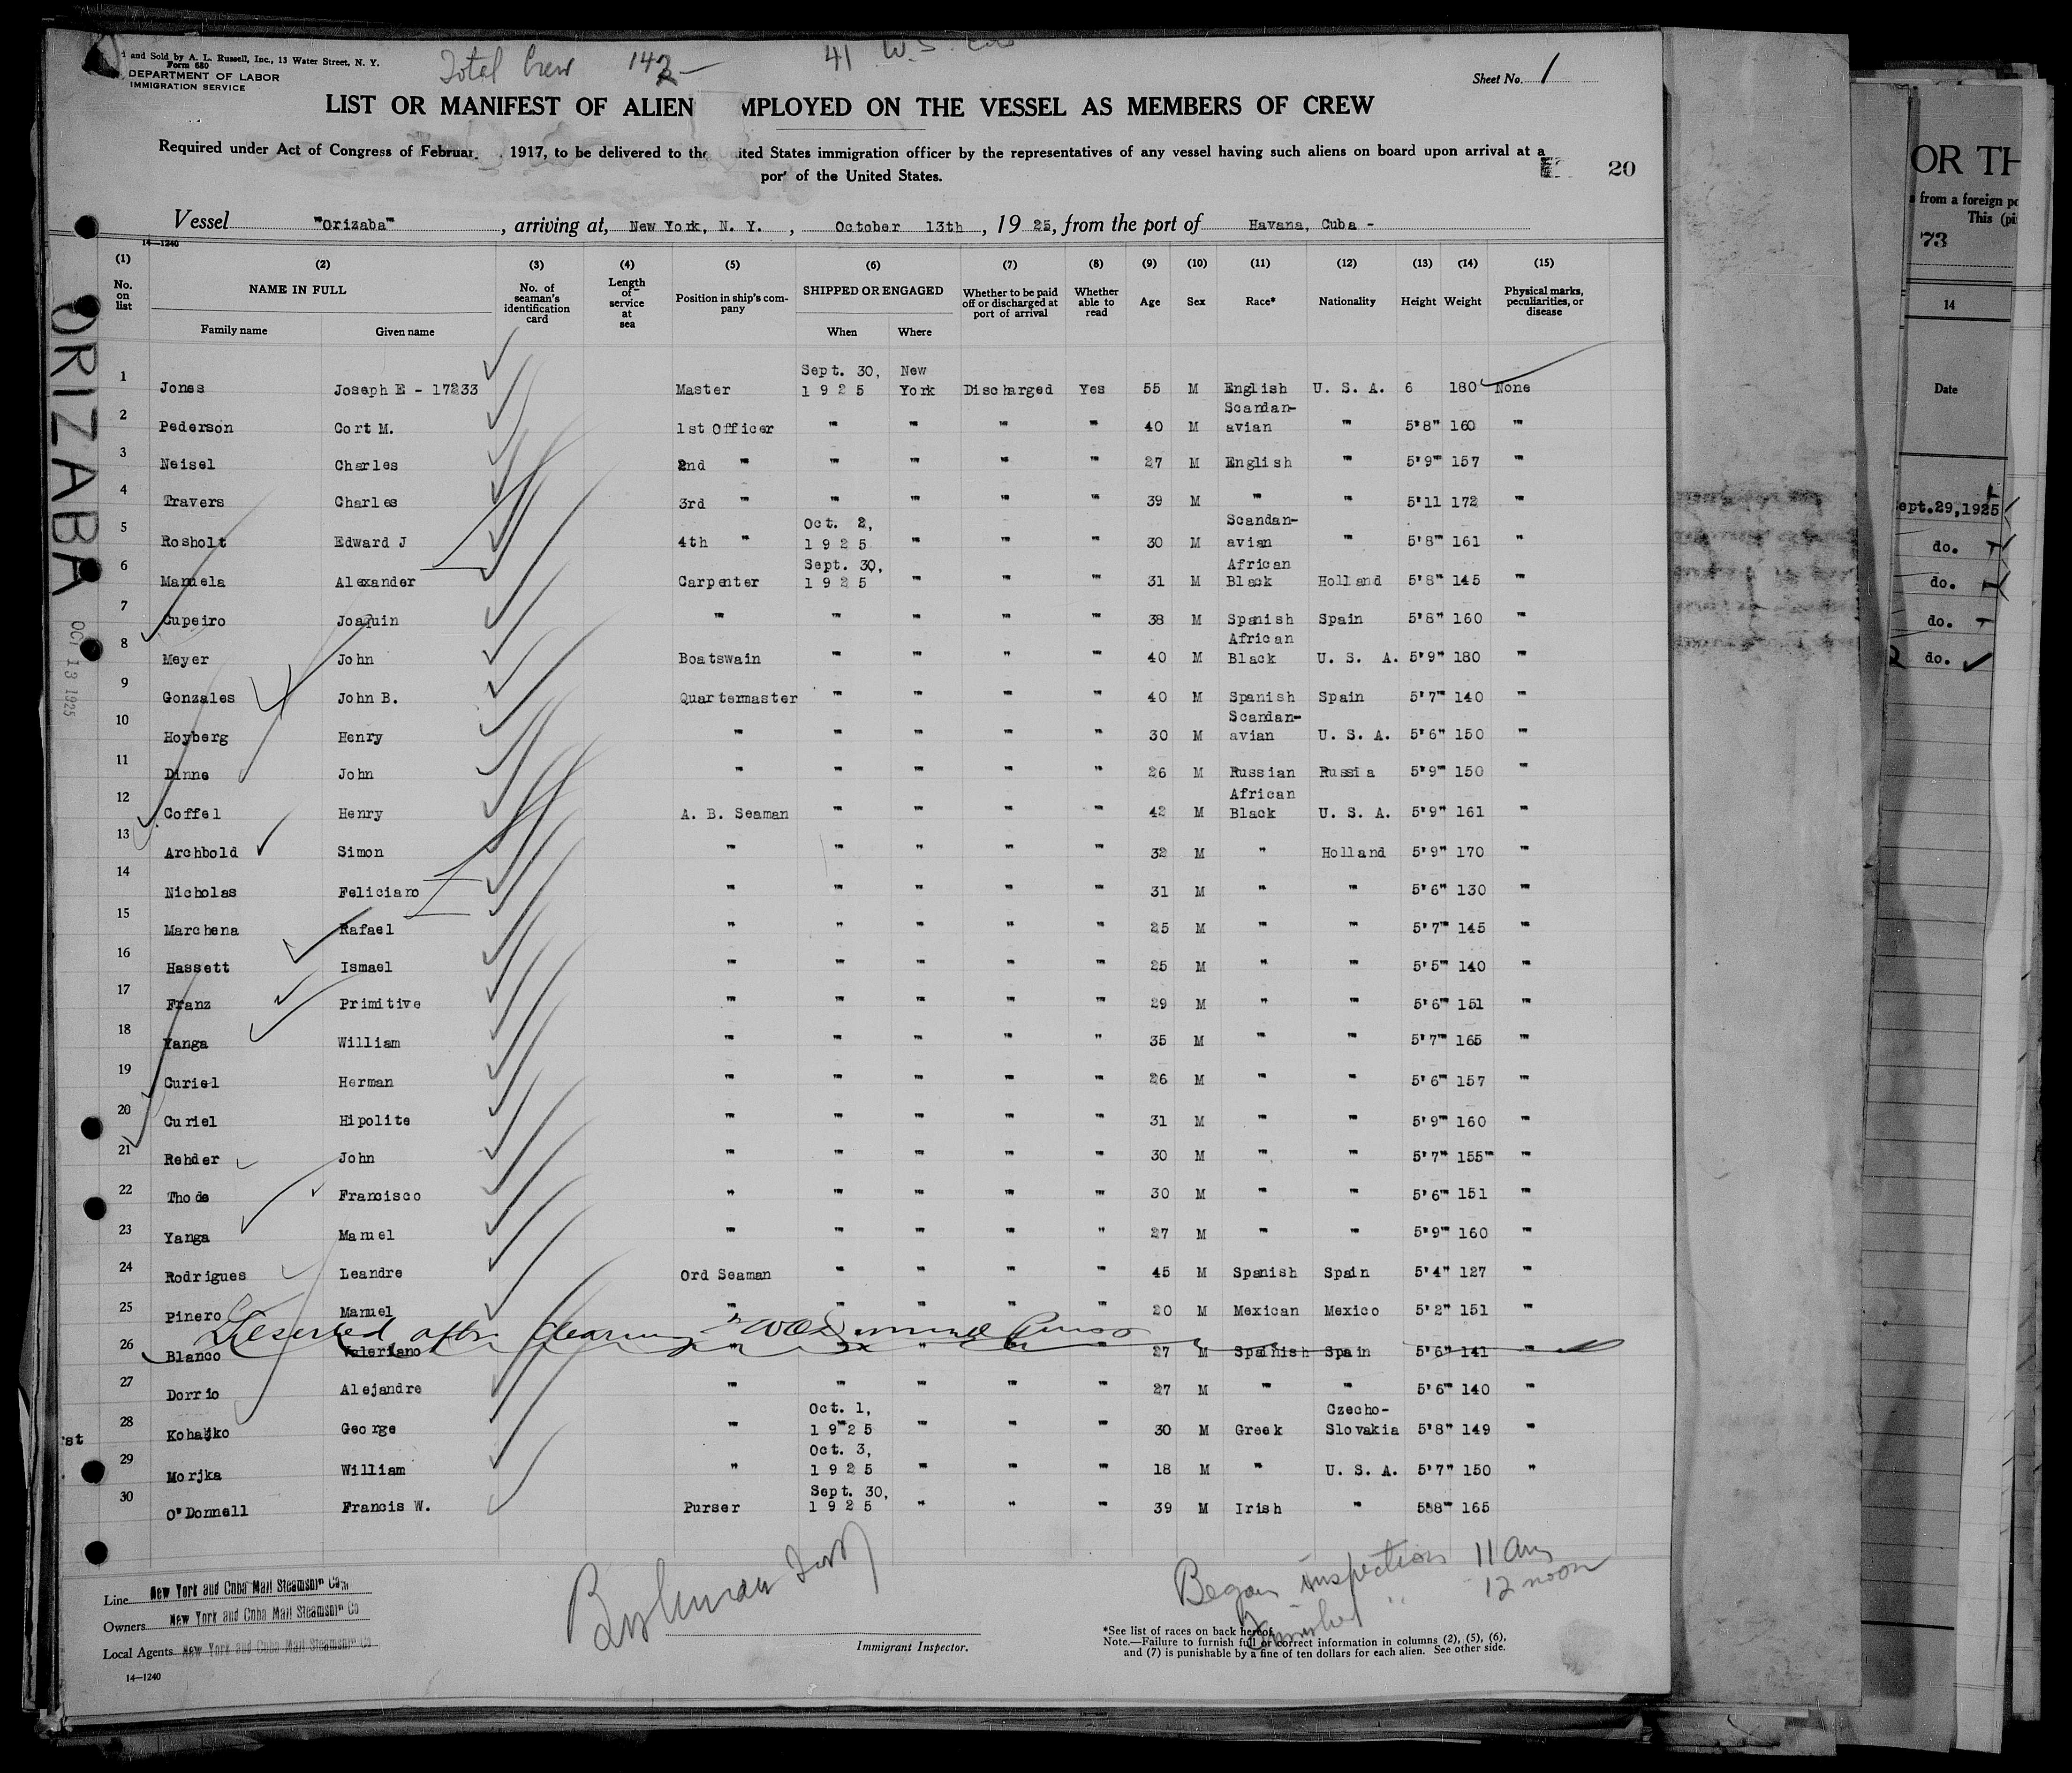 d and Sold by A. L. Russell, Inc., 13 Water Street, N. Y.
Form 680
DEPARTMENT OF LABOR
IMMIGRATION SERVICE
Total Crew 142
41
Sheet No. 1
LIST OR MANIFEST OF ALIEN MPLOYED ON THE VESSEL AS MEMBERS OF CREW
Required under Act of Congress of Februar 1917, to be delivered to the ited States immigration officer by the representatives of any vessel having such aliens on board upon arrival at a
por of the United States.
20
Vessel "Orizaba", arriving at, New York, N. Y., October 13th, 1925, from the port of Havana, Cuba -
14—1240
(1) (2) (3) (4) (5) (6) (7) (8) (9) (10) (11) (12) (13) (14) (15)
No. on list
NAME IN FULL
Family name Given name
No. of seaman's identification card
Length of service at sea
Position in ship's company
SHIPPED OR ENGAGED
When Where
Whether to be paid off or discharged at port of arrival
Whether able to read
Age Sex Race* Nationality Height Weight
Physical marks, peculiarities, or disease
1 Jones Joseph E - 17233 Master Sept. 30, 1925 New York Discharged Yes 55 M English U. S. A. 6 180 None
2 Pederson Cort M. 1st Officer " " " " 40 M Scandan-avian " 5'8" 160 "
3 Neisel Charles 2nd " " " " " 27 M English " 5'9" 157 "
4 Travers Charles 3rd " " " " " 39 M " " 5'11 172 "
5 Rosholt Edward J 4th " Oct. 2, 1925 " " " 30 M Scandan-avian " 5'8" 161 "
6 Manuela Alexander Carpenter Sept. 30, 1925 " " " 31 M African Black Holland 5'8" 145 "
7 Cupeiro Joaquin " " " " " 38 M Spanish Spain 5'8" 160 "
8 Meyer John Boatswain " " " " 40 M African Black U. S. A. 5'9" 180 "
9 Gonzales John B. Quartermaster " " " " 40 M Spanish Spain 5'7" 140 "
10 Hoyberg Henry " " " " " 30 M Scandan-avian U. S. A. 5'6" 150 "
11 Dinne John " " " " " 26 M Russian Russia 5'9" 150 "
12 Coffel Henry A. B. Seaman " " " " 42 M African Black U. S. A. 5'9" 161 "
13 Archbold Simon " " " " " 32 M " Holland 5'9" 170 "
14 Nicholas Feliciano " " " " " 31 M " " 5'6" 130 "
15 Marchena Rafael " " " " " 25 M " " 5'7" 145 "
16 Hassett Ismael " " " " " 25 M " " 5'5" 140 "
17 Franz Primitive " " " " " 29 M " " 5'6" 151 "
18 Yanga William " " " " " 35 M " " 5'7" 165 "
19 Curiel Herman " " " " " 26 M " " 5'6" 157 "
20 Curiel Hipolite " " " " " 31 M " " 5'9" 160 "
21 Rehder John " " " " " 30 M " " 5'7" 155" "
22 Thode Francisco " " " " " 30 M " " 5'6" 151 "
23 Yanga Manuel " " " " " 27 M " " 5'9" 160 "
24 Rodrigues Leandre Ord Seaman " " " " 45 M Spanish Spain 5'4" 127 "
25 Pinero Manuel " " " " " 20 M Mexican Mexico 5'2" 151 "
Deserted after clearing
26 Blanco Valeriano " " " " " 27 M Spanish Spain 5'6" 141 "
27 Dorrio Alejandre " " " " " 27 M " " 5'6" 140 "
28 Kohajko George " Oct. 1, 1925 " " " 30 M Greek Czecho-Slovakia 5'8" 149 "
29 Morjka William " Oct. 3, 1925 " " " 18 M " U. S. A. 5'7" 150 "
30 O'Donnell Francis W. Purser Sept. 30, 1925 " " " 39 M Irish " 5'8" 165
Line New York and Cuba Mail Steamship Co.
Owners New York and Cuba Mail Steamship Co
Local Agents New York and Cuba Mail Steamship Co
14—1240
Immigrant Inspector.
Began inspection 11 am
Finished " 12 noon
*See list of races on back hereof.
Note.—Failure to furnish full or correct information in columns (2), (5), (6),
and (7) is punishable by a fine of ten dollars for each alien. See other side.
ORIZABA
OCT 13 1925
st
OR TH
from a foreign po
This (pi
73
14
Date
ept.29,1925
do.
do.
do.
do.